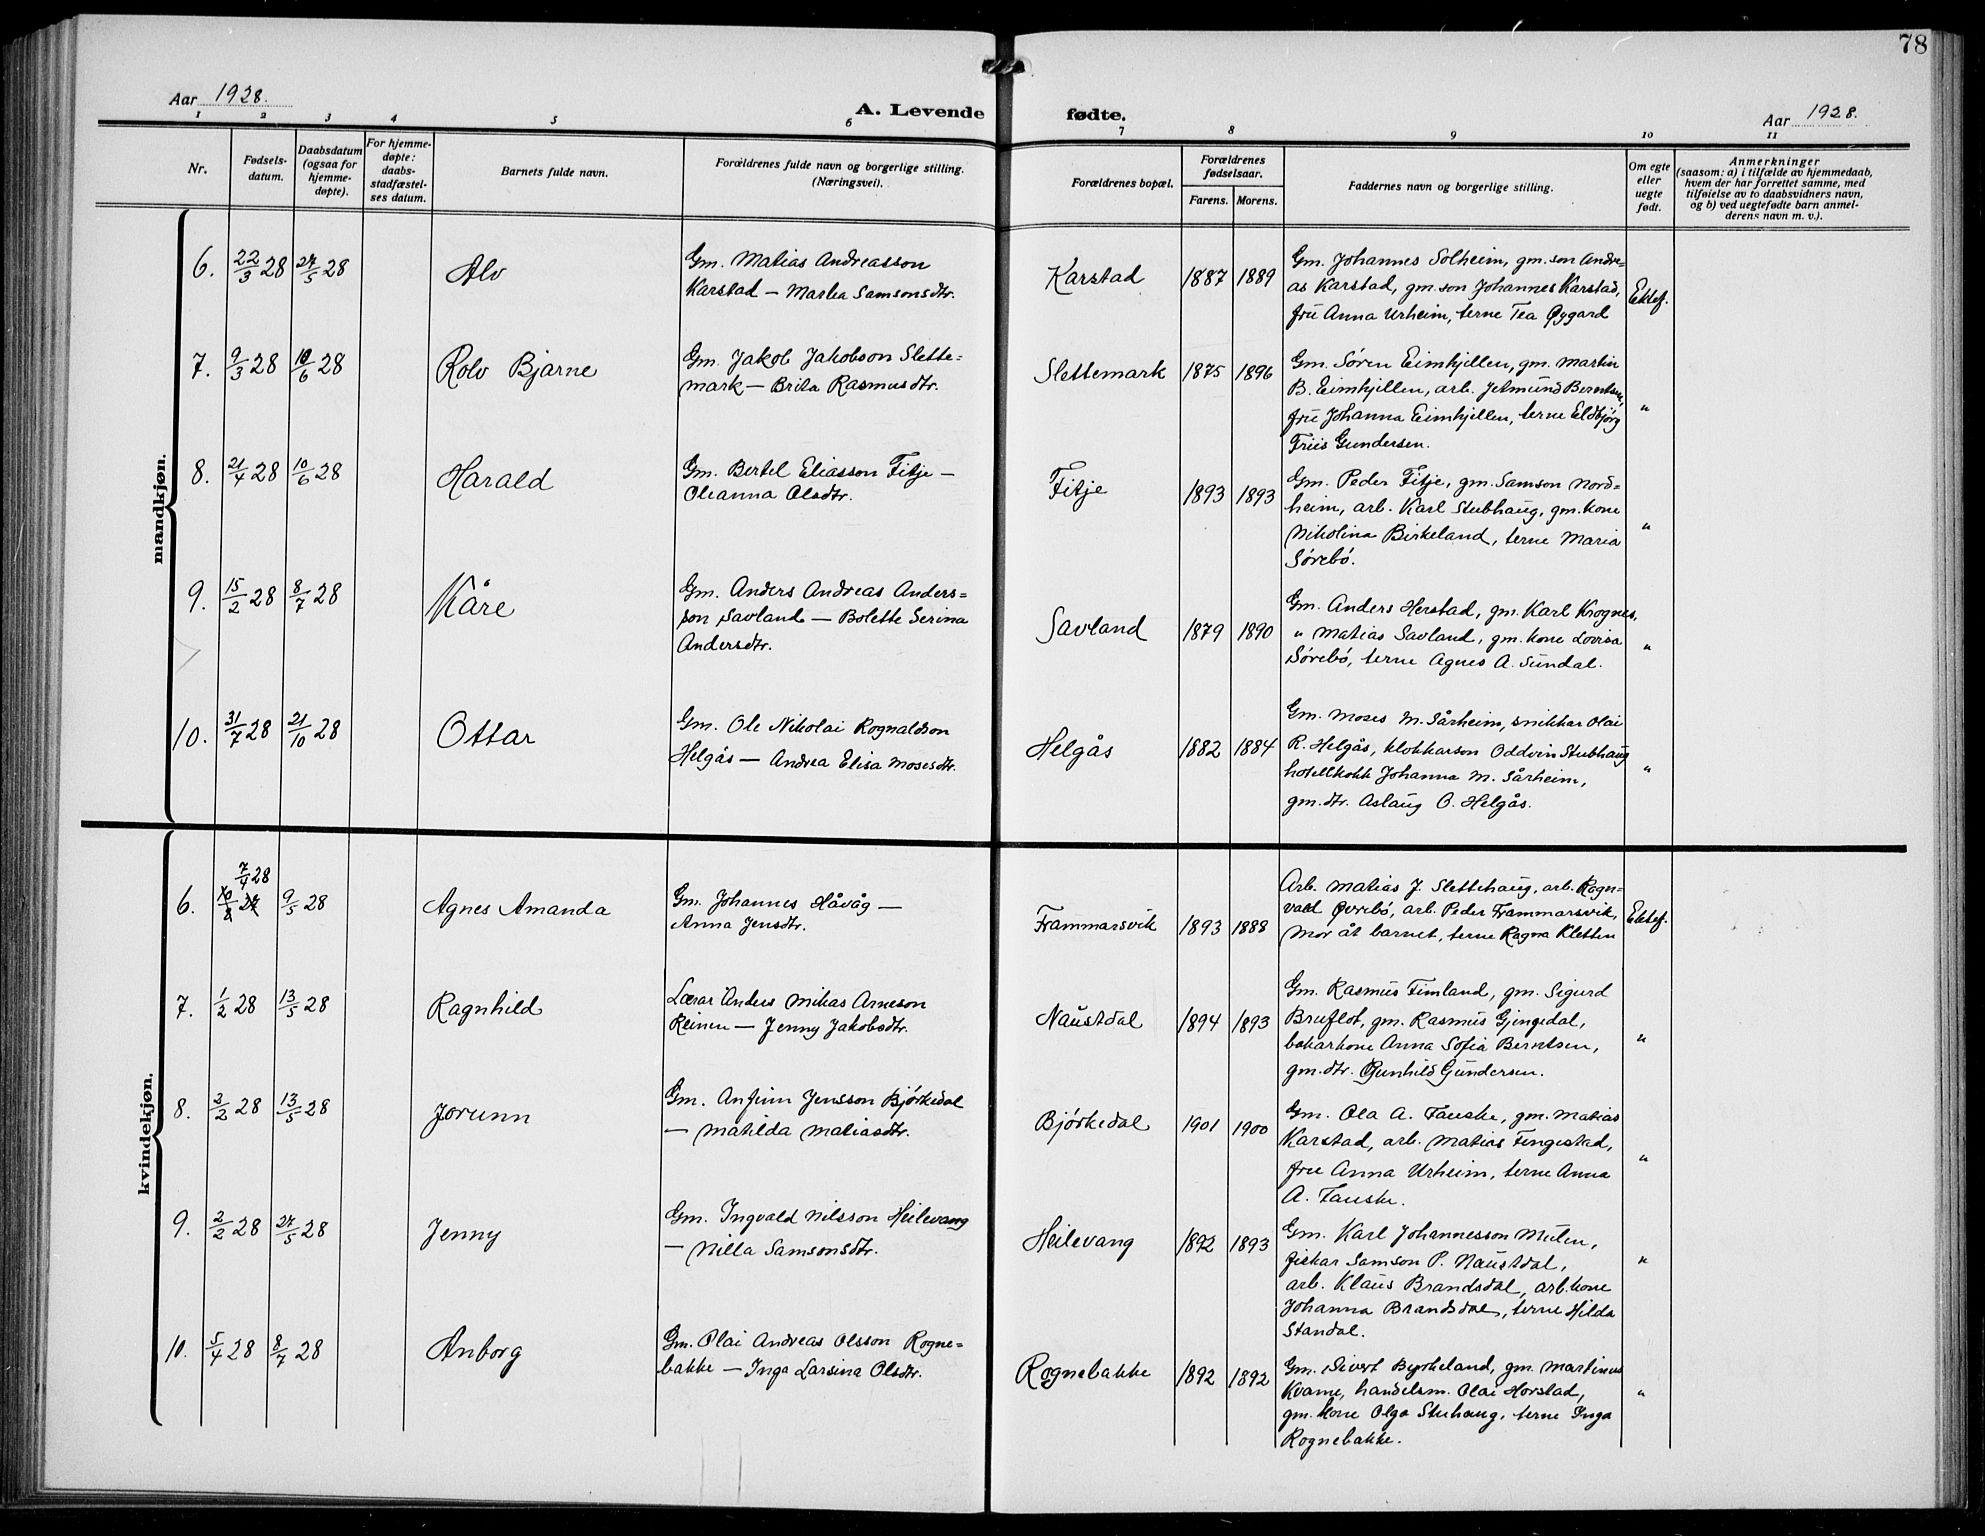 78
Aar 1928.
A. Levende
fødte.
Aar 1928.
1 2 3 4 5 6 7 8 9 10 11
Nr.
Fødsels-
datum.
Daabsdatum
(ogsaa for
hjemme-
døpte).
For hjemme-
døpte:
daabs-
stadfæstel-
ses datum.
Barnets fulde navn.
Forældrenes fulde navn og borgerlige stilling.
(Næringsvei).
Forældrenes bopæl.
Forældrenes
fødselsaar.
Farens. Morens.
Faddernes navn og borgerlige stilling.
Om egte
eller
uegte
født.
Anmerkninger
(saasom: a) i tilfælde av hjemmedaab,
hvem der har forrettet samme, med
tilføielse av to daabsvidners navn,
og b) ved uegtefødte barn anmel-
derens navn m. v.).
mandkjøn.
6. 22/3 28 27/5 28 Alv
Gm. Matias Andreasson
Karstad — Martea Samsonsdtr.
Karstad 1887 1889
Gm. Johannes Solheim, gm. son Andre=
as Karstad, gm. son Johannes Karstad,
fru Anna Urheim, terne Tea Øygard
Ektef.
7. 9/3 28 10/6 28 Rolv Bjarne
Gm. Jakob Jakobson Slette=
mark — Brita Rasmusdtr.
Slettemark 1875 1896
Gm. Søren Eimhjellen, gm. Martin
B. Eimhjellen, arb. Jetmund Berntsen,
fru Johanna Eimhjellen, terne Eldbjørg
Friis Gundersen.
"
8. 21/4 28 10/6 28 Harald
Gm. Bertel Eliasson Fitje —
Oleanna Olsdtr.
Fitje 1893 1893
Gm. Peder Fitje, gm. Samson Nord=
heim, arb. Karl Stubhaug, gm. kone
Nikolina Birkeland, terne Maria
Sørebø.
"
9. 15/2 28 8/7 28 Kåre
Gm. Anders Andreas Anders=
son Savland — Bolette Serina
Andersdtr.
Savland 1879 1890
Gm. Anders Herstad, gm. Karl Krognes,
" Matias Savland, gm. kone Lovisa
Sørebø, terne Agnes A. Sundal.
"
10. 31/7 28 21/10 28 Ottar
Gm. Ole Nikolai Rognaldson
Helgås — Andrea Elisa Mosesdtr.
Helgås 1882 1884
Gm. Moses M. Sårheim, snikkar Olai
R. Helgås, klokkarson Oddvin Stubhaug
hotellkokk Johanna M. Sårheim,
gm. dtr. Aslaug O. Helgås.
"
kvindekjøn.
7/4 28
6. 9/5 28 Agnes Amanda
Gm. Johannes Håvåg —
Anna Jensdtr.
Frammarsvik 1893 1888
Arb. Matias J. Slettehaug, arb. Ragn=
vald Øvrebø, arb. Peder Frammarsvik,
Mor åt barnet, terne Ragna Kletten
Ektef.
7. 1/2 28 13/5 28 Ragnhild
Lærar Anders Mikas Arneson
Reinen — Jenny Jakobsdtr.
Naustdal 1894 1893
Gm. Rasmus Fimland, gm. Sigurd
Bruflot, gm. Rasmus Gjengedal,
bakarkone Anna Sofia Berntsen,
gm. dtr. Gunhild Gundersen.
"
8. 2/2 28 13/5 28 Jorunn
Gm. Anfinn Jensson Bjørkedal
— Matilda Matiasdtr.
Bjørkedal 1901 1900
Gm. Ola A. Fauske, gm. Matias
Karstad, arb. Matias Tingstad,
fru Anna Urheim, terne Anna
A. Fauske.
"
9. 2/2 28 27/5 28 Jenny
Gm. Ingvald Nilsson Heilevang
— Nilla Samsonsdtr.
Heilevang 1892 1893
Gm. Karl Johannesson Mulen,
fiskar Samson P. Naustdal,
arb. Klaus Brandsdal, arb. kone
Johanna Brandsdal, terne Hilda
Standal.
"
10. 5/4 28 8/7 28 Anborg
Gm. Olai Andreas Olsson Rogne=
bakke — Inga Larsina Olsdtr.
Rognebakke 1892 1892
Gm. Sivert Byrkeland, gm. Martinus
Kvame, handelsm. Olai Horstad,
gm. kone Olga Stuhaug, terne Inga
Rognebakke.
"